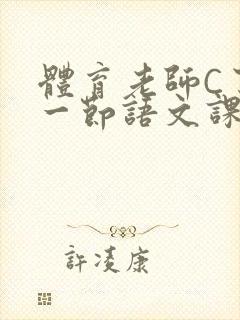 體育老師C
一節語文課
許凌康